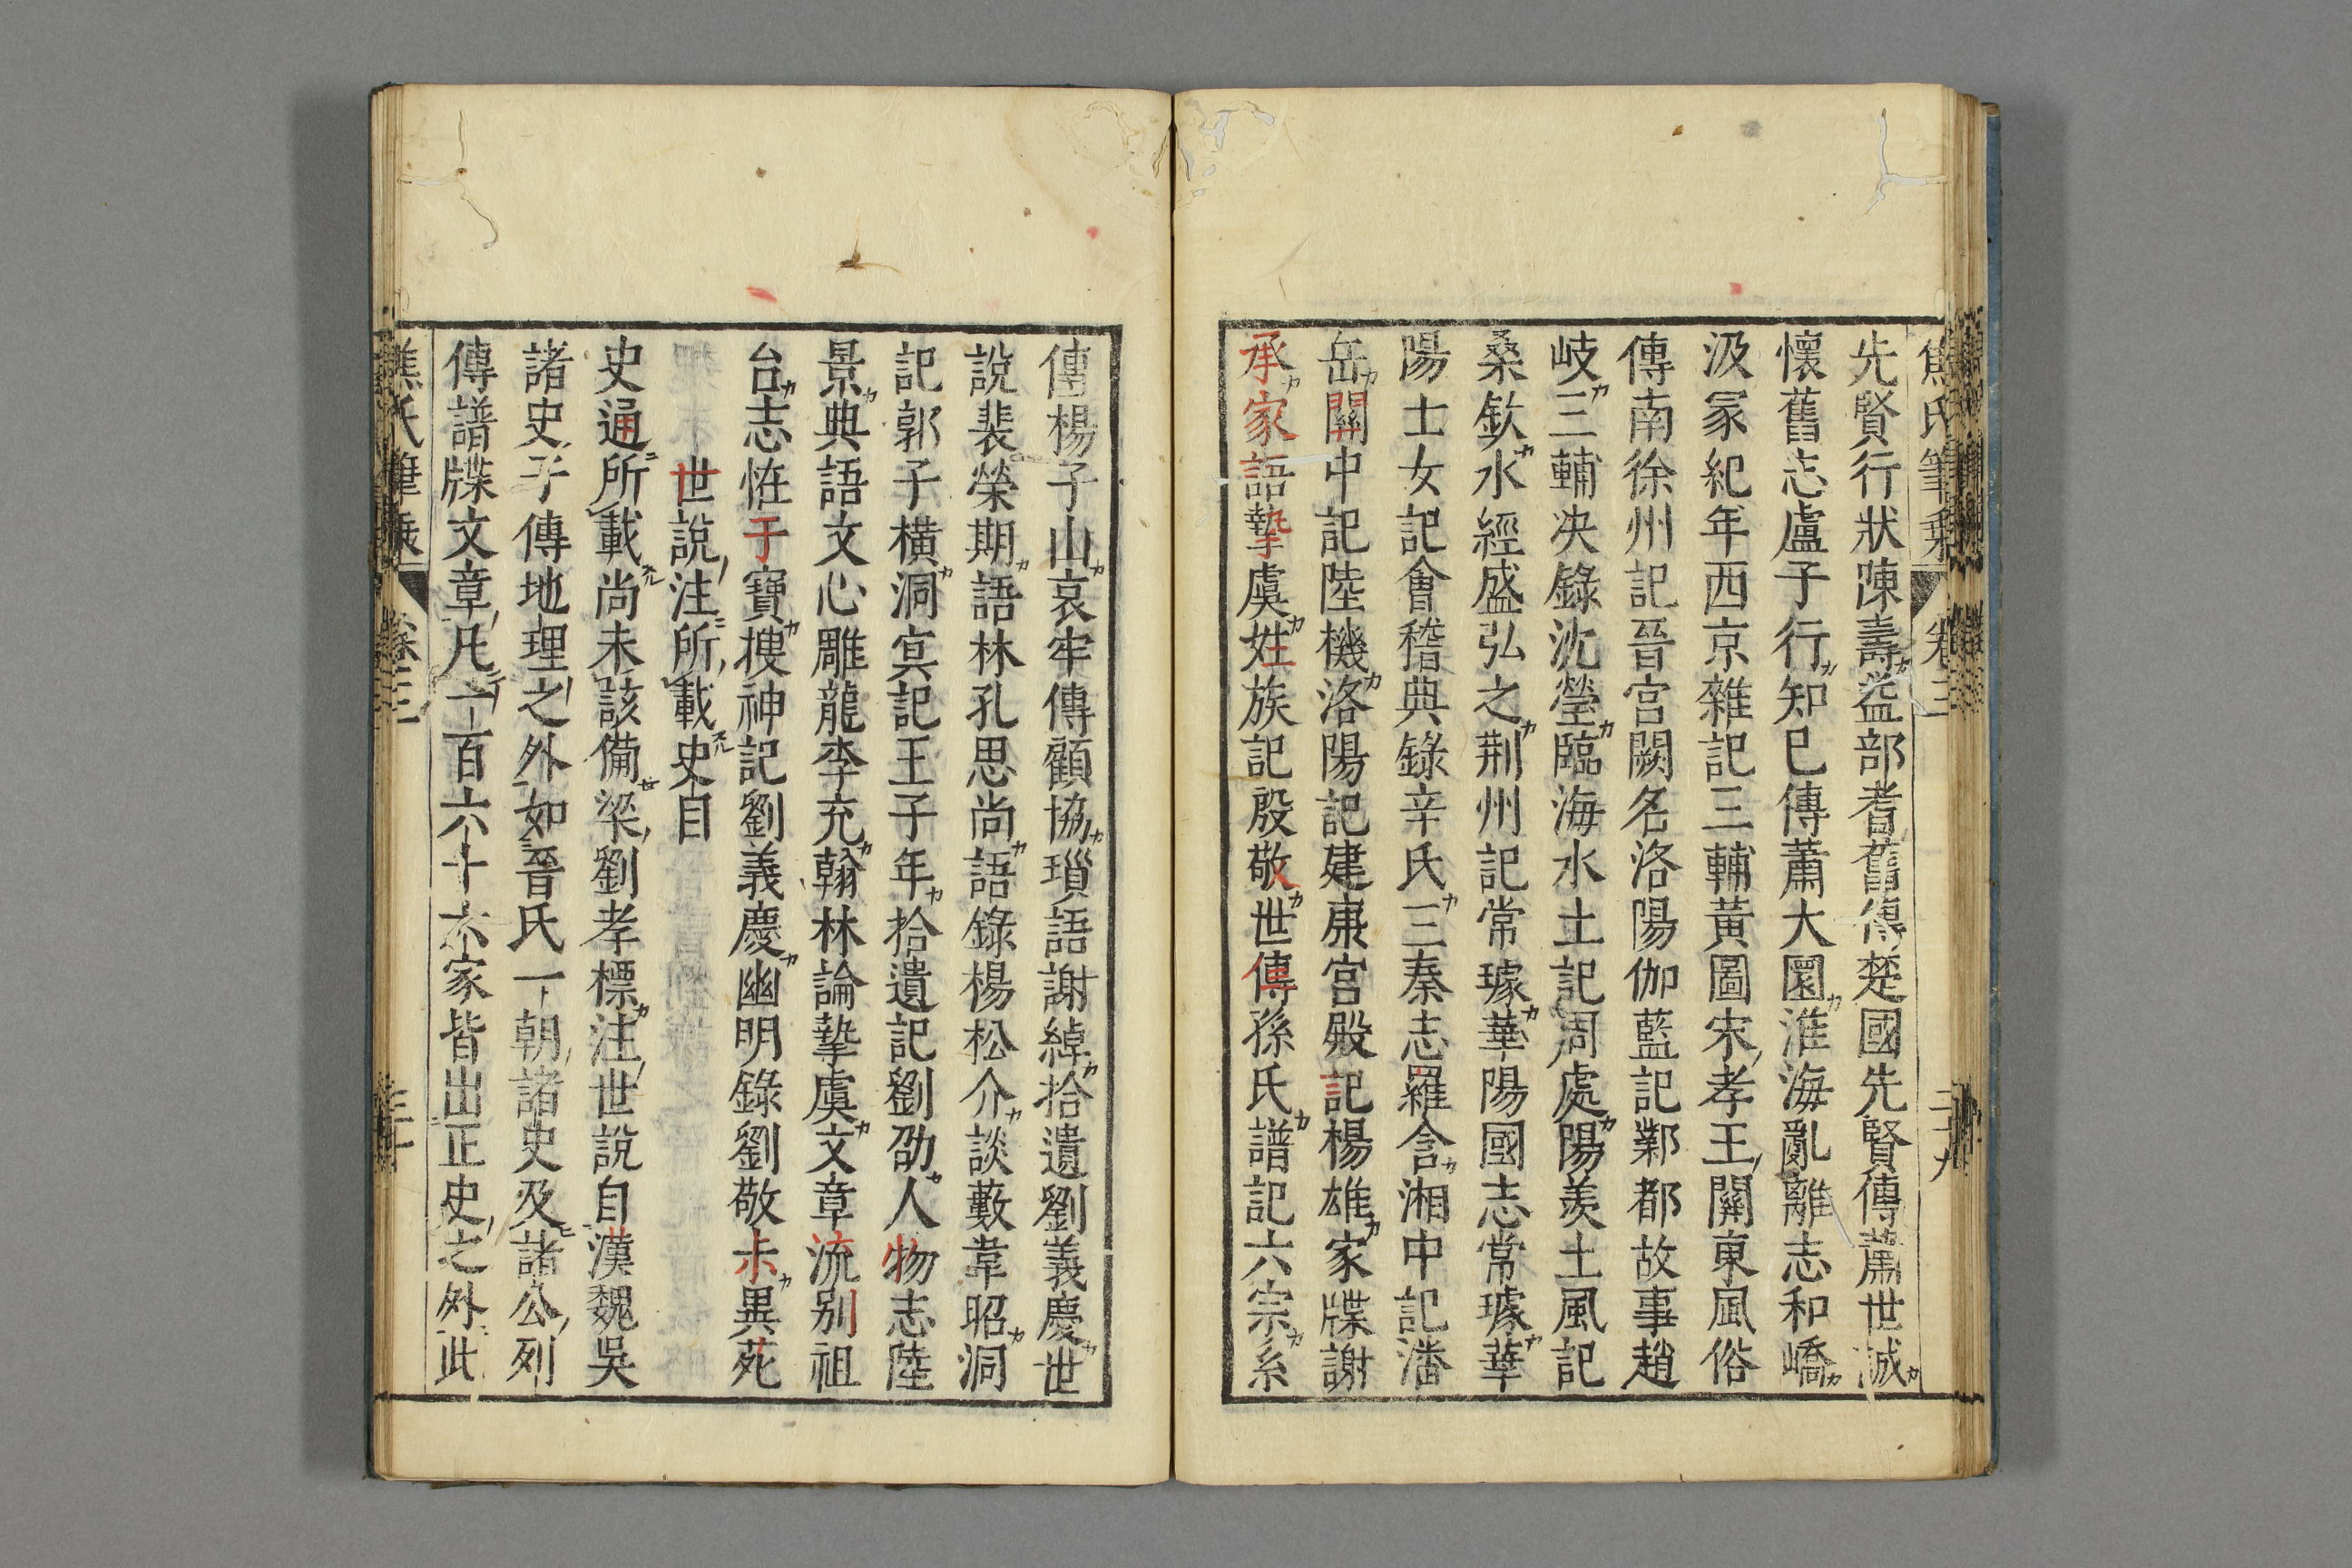 焦氏筆乗 卷三 三十九
先賢行狀陳壽益部耆舊傳楚國先賢傳蕭世誠
懷舊志盧子行知已傳蕭大圜淮海亂離志和嶠
汲冢紀年西京雜記三輔黃圖宋孝王關東風俗
傳南徐州記晉宮闕名洛陽伽藍記鄴都故事趙
岐三輔决錄沈瑩臨海水土記周處陽羨土風記
桑欽水經盛弘之荆州記常璩華陽國志常璩華
陽士女記會稽典錄辛氏三秦志羅含湘中記潘
岳關中記陸機洛陽記建康宮殿記楊雄家牒謝
承家語摯虞姓族記殷敬世傳孫氏譜記六宗系
傳楊子山哀牢傳顧協瑣語謝綽拾遺劉義慶世
說裴榮期語林孔思尚語錄楊松介談藪韋昭洞
記郭子橫洞冥記王子年拾遺記劉劭人物志陸
景典語文心雕龍李充翰林論摯虞文章流别祖
台志恠于寶搜神記劉義慶幽明錄劉敬未異苑
世說注所載史目
史通所載尚未該備梁劉孝標注世說自漢魏吳
諸史子傳地理之外如晉氏一朝諸史及諸公列
傳譜牒文章凡一百六十六家皆出正史之外此
焦氏筆乗 卷三